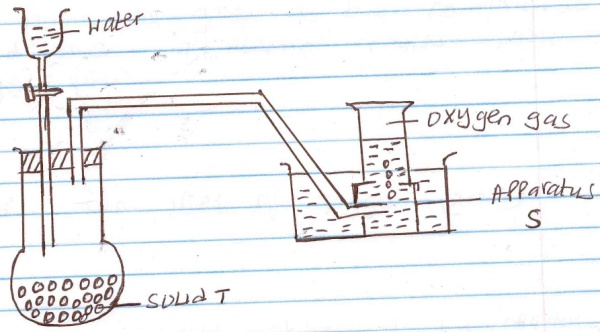 Water
Oxygen gas
Apparatus
S
Solid T